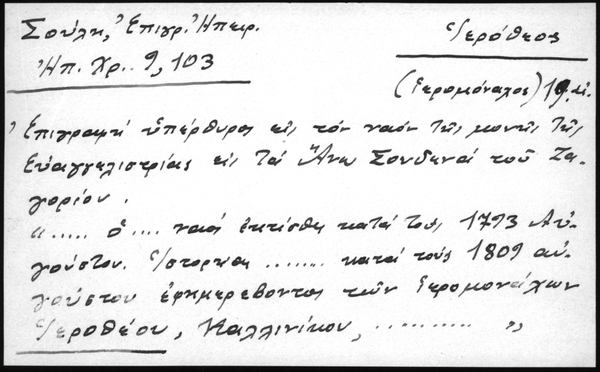 Σούλη, Ἐπιγρ. Ἠπειρ.
Ἠπ. Χρ. 9, 103
Ἱερόθεος
(Ἱερομόναχος) 19. αἰ.
Ἐπιγραφή ὑπέρθυρος εἰς τόν ναόν τῆς μονῆς τῆς
Εὐαγγελιστρίας εἰς τά Ἄνω Σουδενά τοῦ Ζα-
γορίου.
"..... ὁ .... ναός ἐκτίσθη κατά τούς 1793 Αὐ-
γούστου. Ἱστορήθη ........ κατά τούς 1809 αὐ-
γούστου ἐφημερέβοντος τῶν Ἱερομονάχων
Ἱεροθέου, Καλλινίκου, .......... "